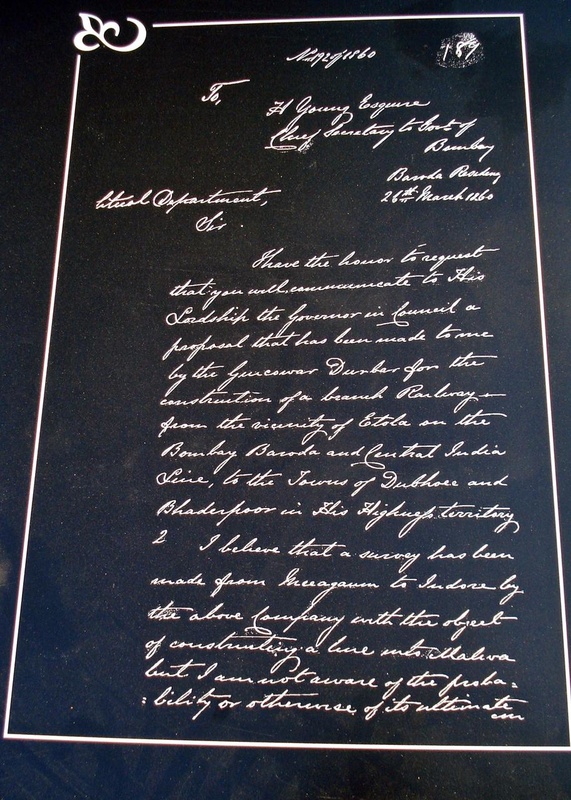 No 192 of 1860
189
To,
H Young Esquire
Chief Secretary to Govt of
Bombay
Baroda Residency
26th March 1860
litical Department,
Sir
I have the honor to request
that you will communicate to His
Lordship the Governor in Council a
proposal that has been made to me
by the Guicowar Durbar for the
construction of a branch Railway
from the vicinity of Etola on the
Bombay Baroda and Central India
Line, to the Towns of Dubhoee and
Bhaderpoor in His Highness territory
2 I believe that a survey has been
made from Meeagaum to Indore by
the above Company with the object
of constructing a line into Malwa
but I am not aware of the proba=
=bility or otherwise of its ultimate